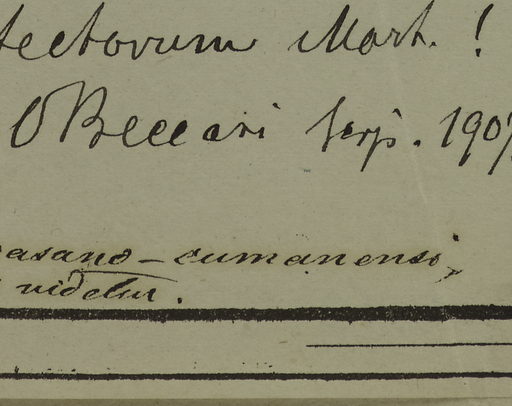 tectorum Mart. !
O Beccari scrip. 1907
casano-cumanensi,
videtur.